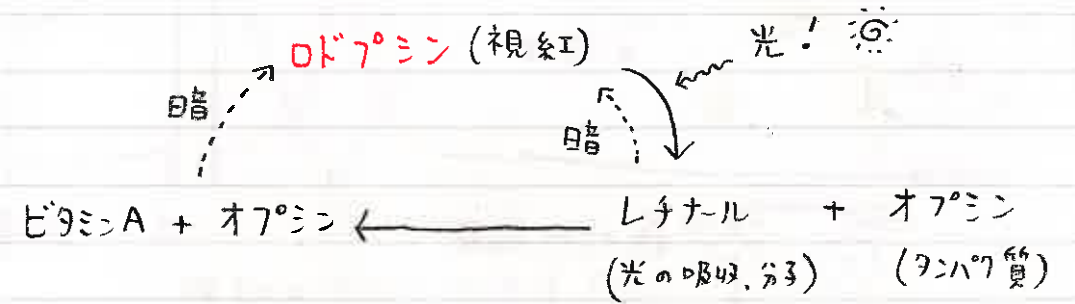 ロドプシン (視紅) 光!
暗
暗
ビタミンA + オプシン レチナール + オプシン
(光の吸収分子) (タンパク質)